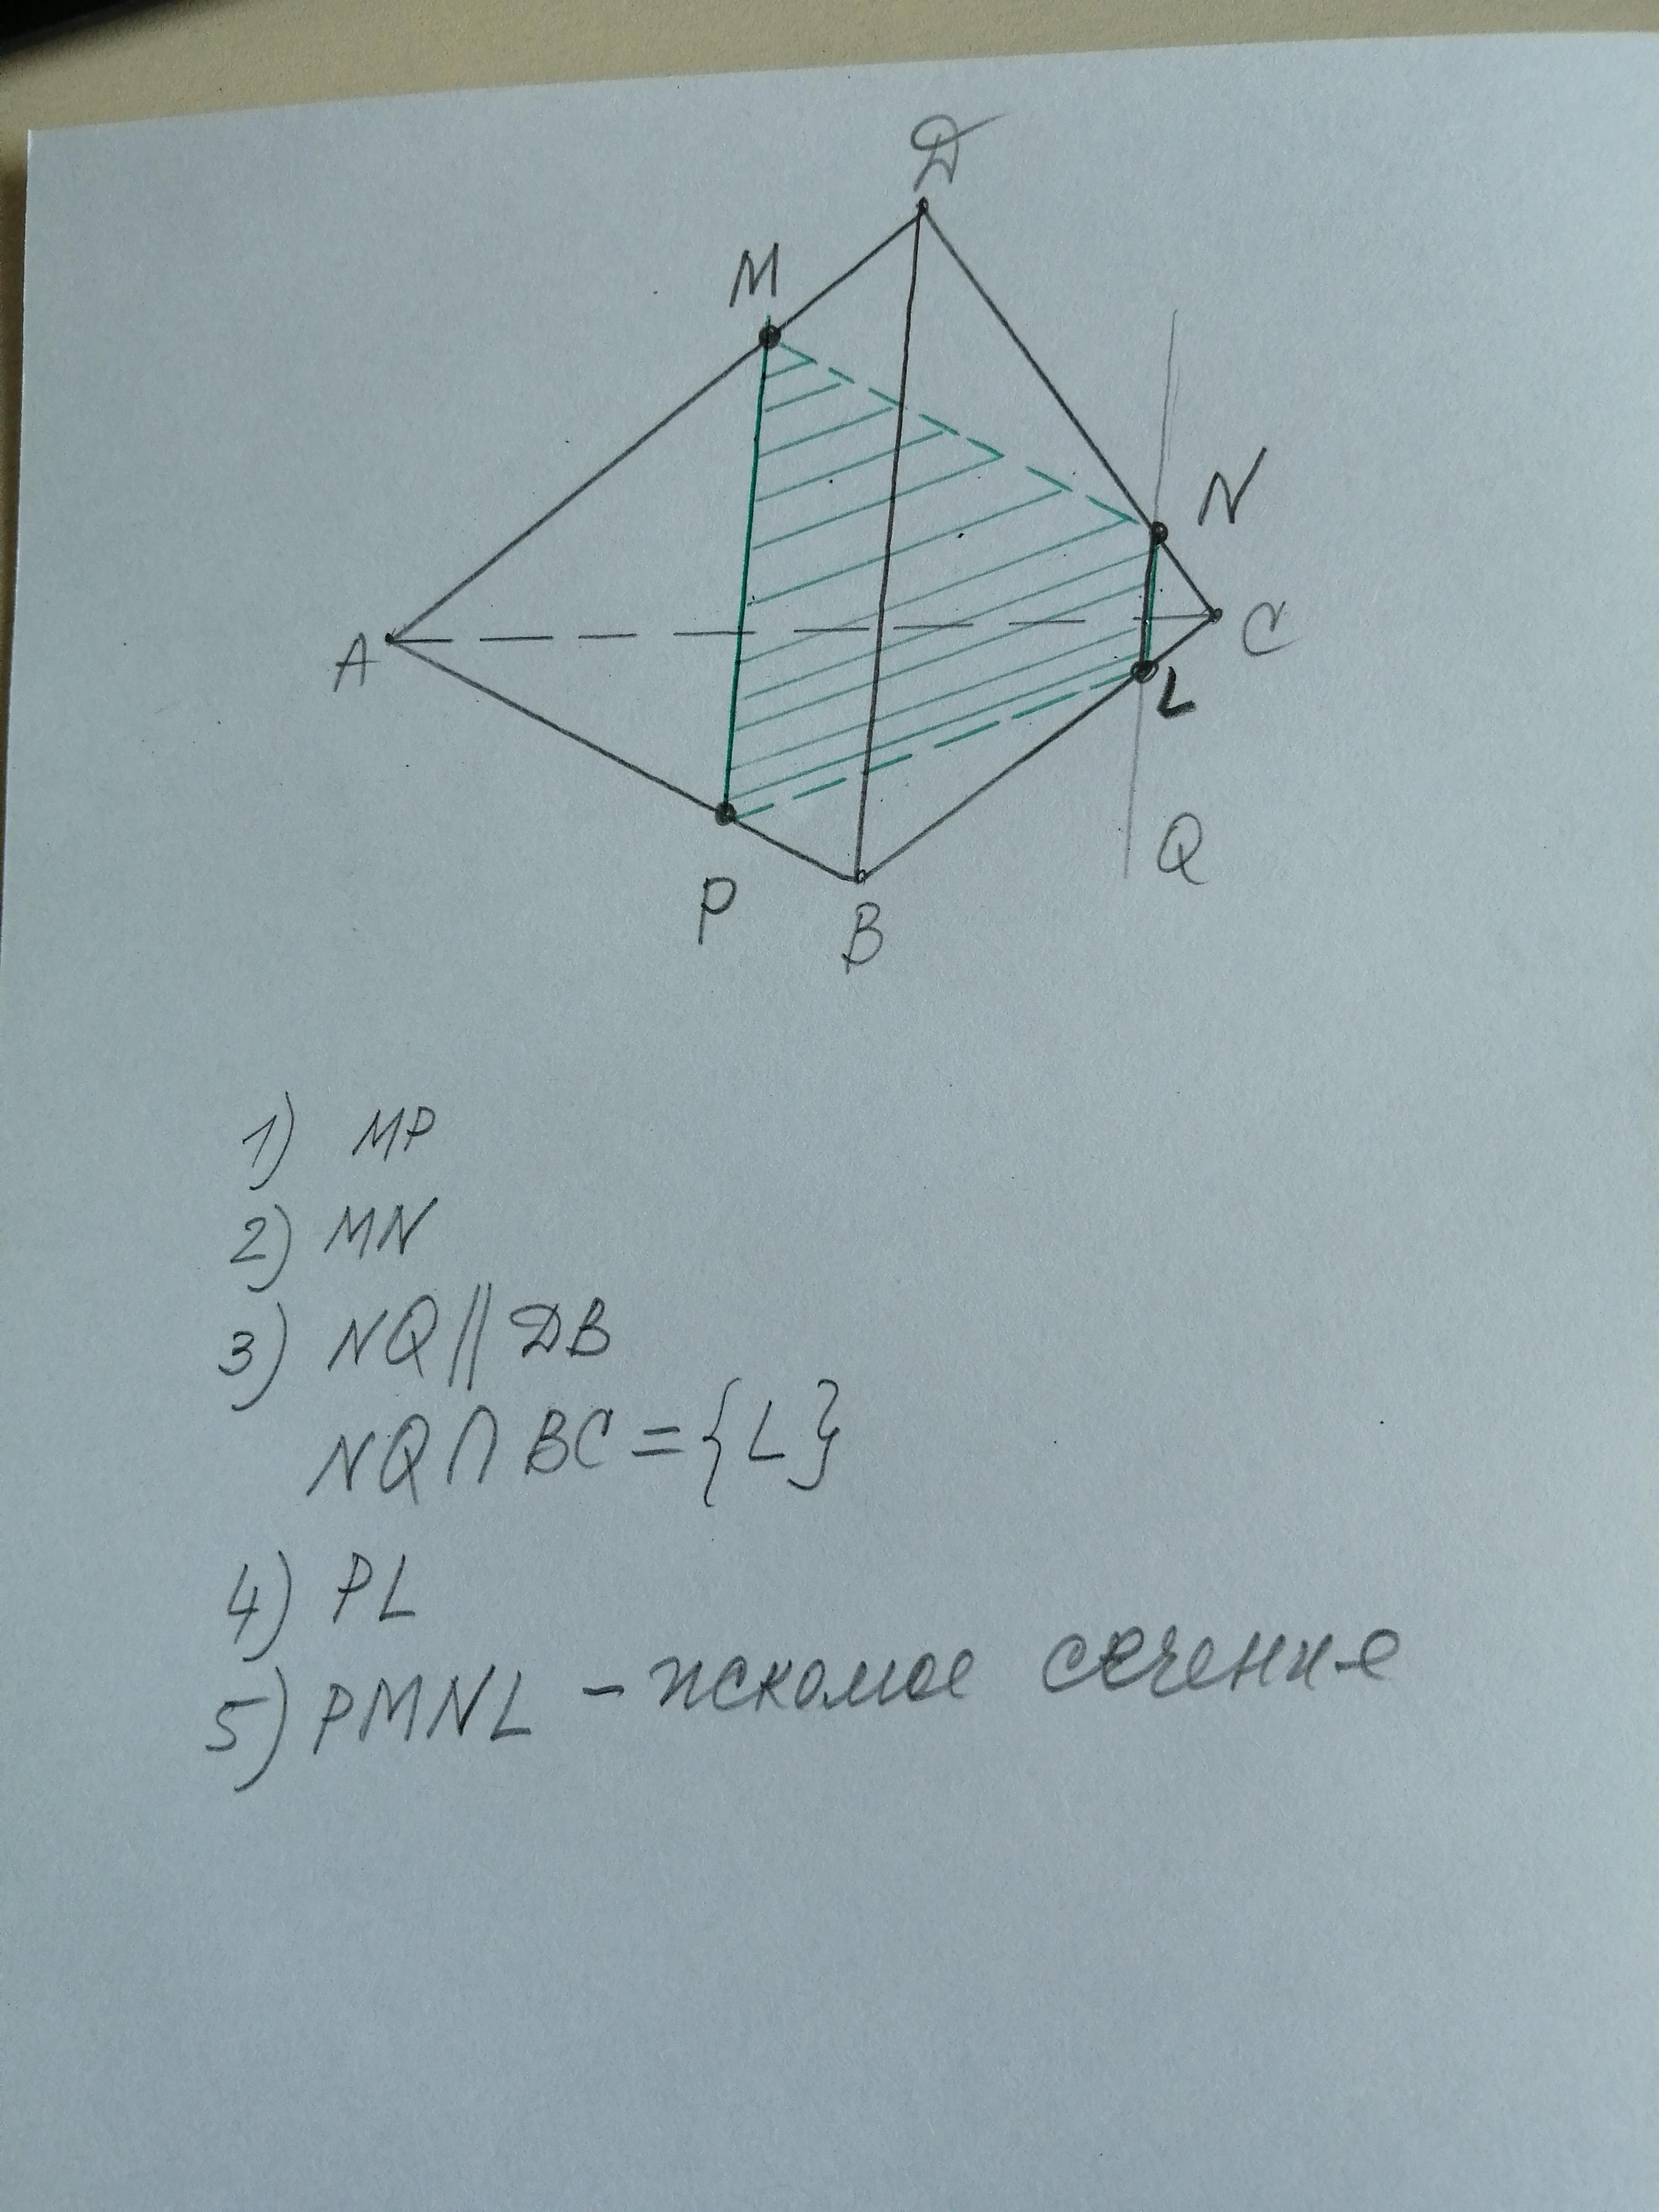 D
M
N
A
C
L
Q
P
B
1) MP
2) MN
3) NQ || DB
NQ ∩ BC = {L}
4) PL
5) PMNL – искомое сечение